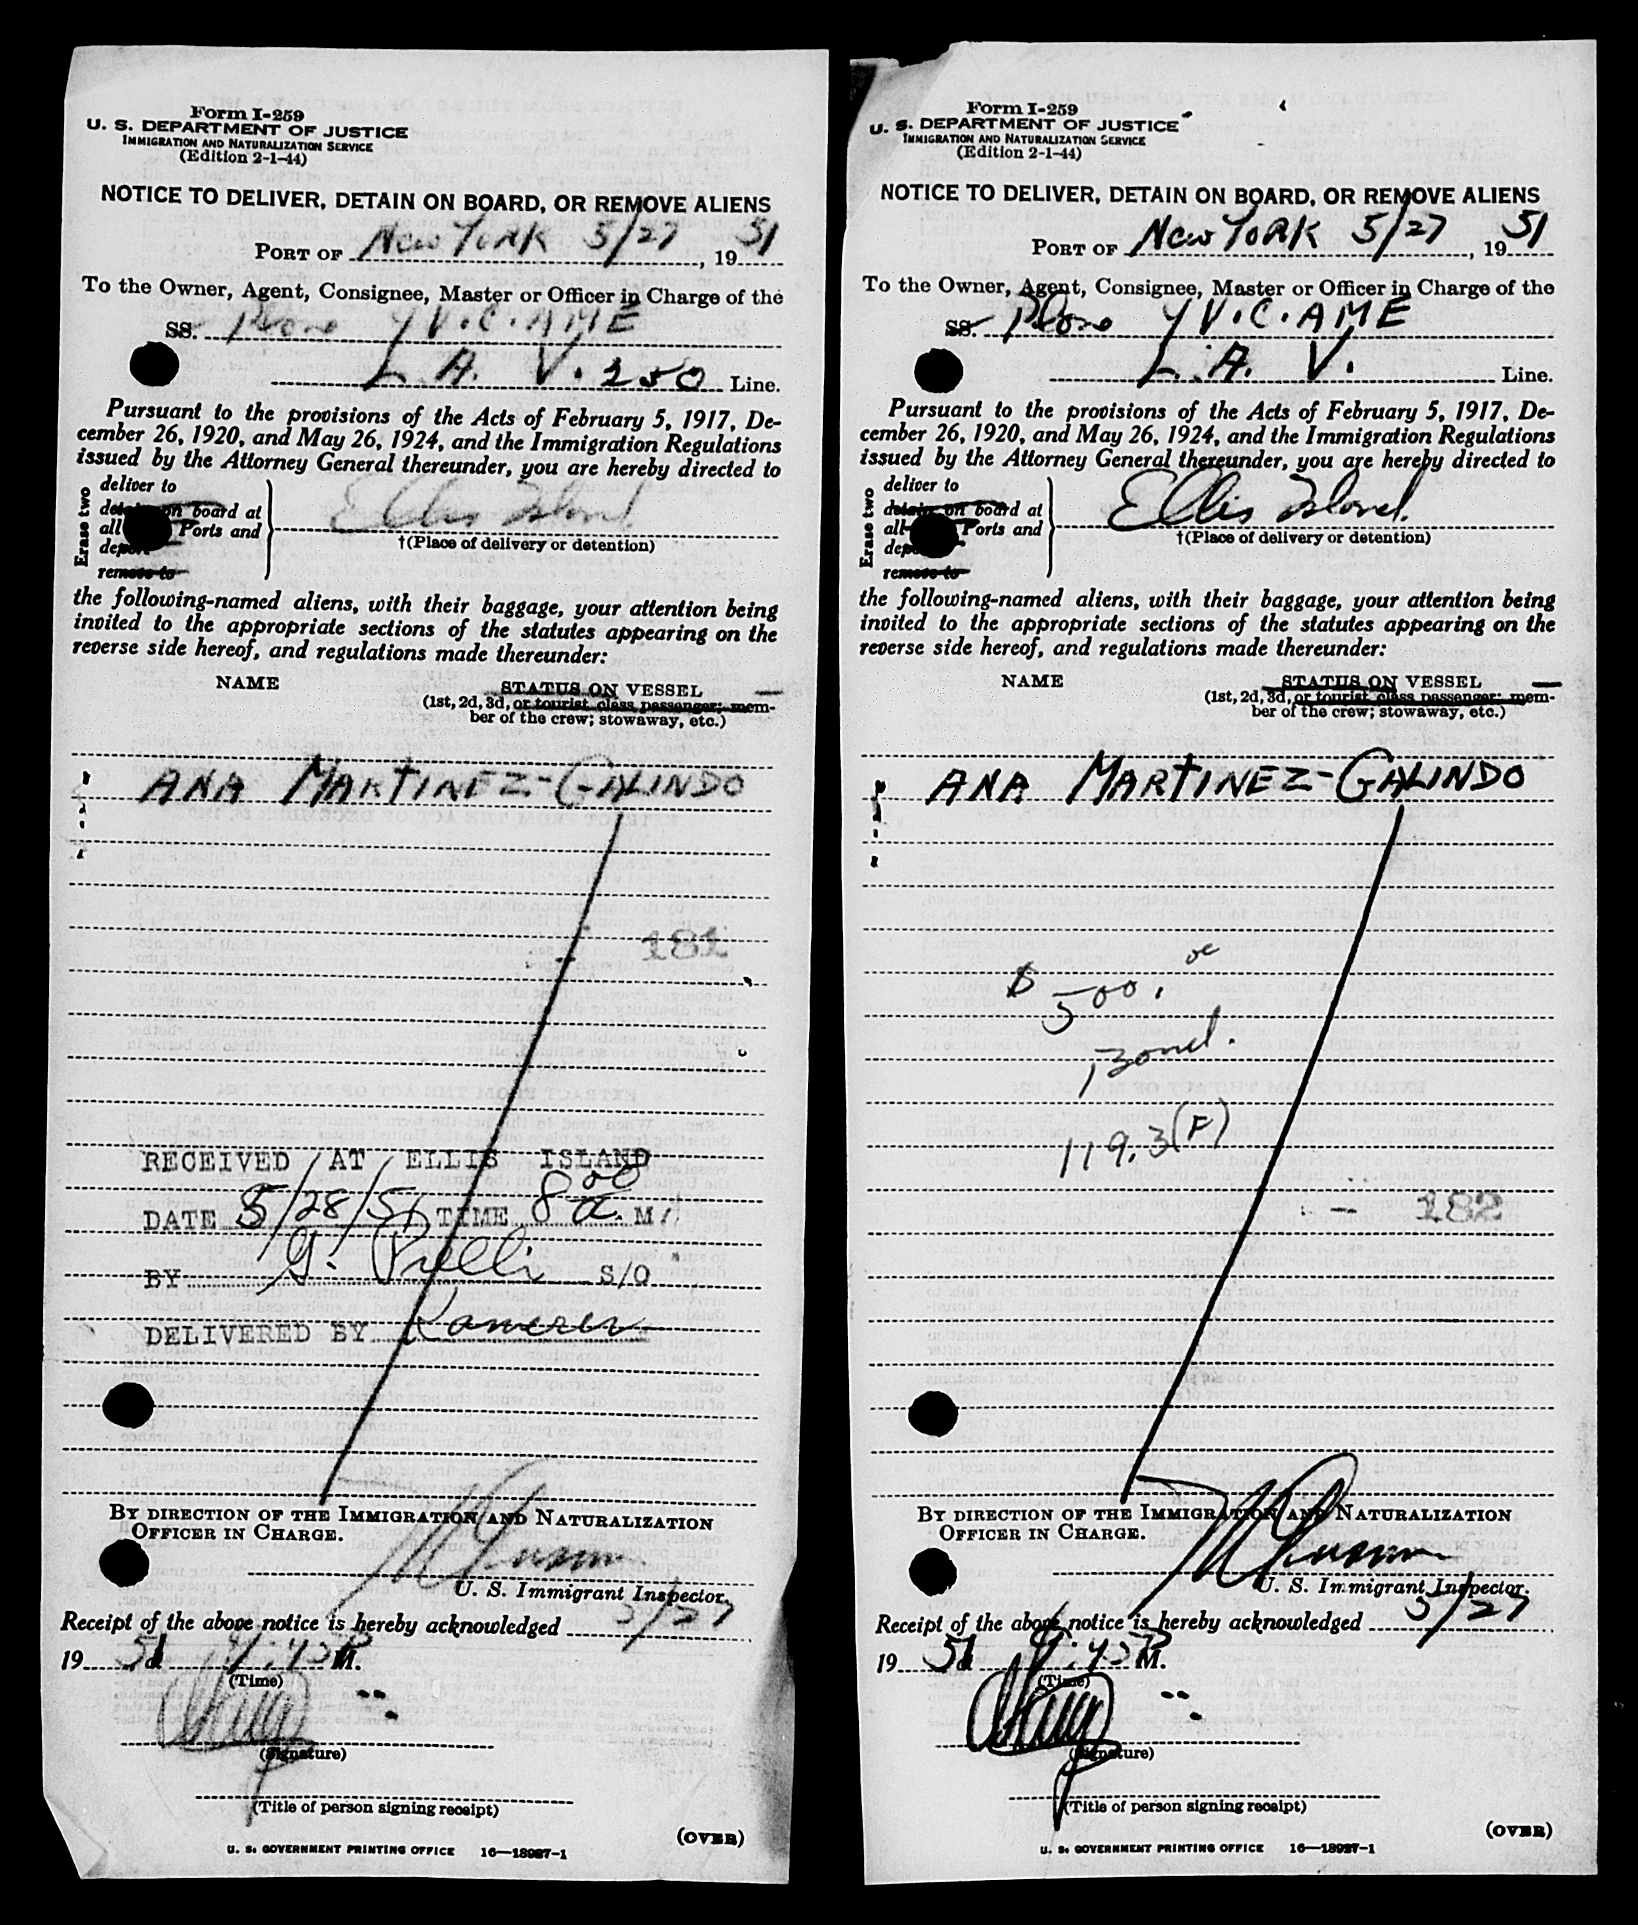 Form I-259
U. S. DEPARTMENT OF JUSTICE
IMMIGRATION AND NATURALIZATION SERVICE
(Edition 2-1-44)
NOTICE TO DELIVER, DETAIN ON BOARD, OR REMOVE ALIENS
PORT OF New York 5/27, 1951
To the Owner, Agent, Consignee, Master or Officer in Charge of the
SS. Plane YV.C.AME
L. A. V. 250 Line.
Pursuant to the provisions of the Acts of February 5, 1917, De-
cember 26, 1920, and May 26, 1924, and the Immigration Regulations
issued by the Attorney General thereunder, you are hereby directed to
Erase two
deliver to
on board at
all Ports and
remove to
Ellis Island
†(Place of delivery or detention)
the following-named aliens, with their baggage, your attention being
invited to the appropriate sections of the statutes appearing on the
reverse side hereof, and regulations made thereunder:
NAME
STATUS ON VESSEL
(1st, 2d, 3d, or tourist class passenger; mem-
ber of the crew; stowaway, etc.)
ANA MARTINEZ-GALINDO
181
RECEIVED AT ELLIS ISLAND
DATE 5/28/51 TIME 8 00 a. M.
BY G. S/O
DELIVERED BY
BY DIRECTION OF THE IMMIGRATION AND NATURALIZATION
OFFICER IN CHARGE.
U. S. Immigrant Inspector.
Receipt of the above notice is hereby acknowledged 5/27
1951 at 4:45 P M.
(Time)
(Signature)
(Title of person signing receipt)
(OVER)
U. S. GOVERNMENT PRINTING OFFICE 16—18927-1
Form I-259
U. S. DEPARTMENT OF JUSTICE
IMMIGRATION AND NATURALIZATION SERVICE
(Edition 2-1-44)
NOTICE TO DELIVER, DETAIN ON BOARD, OR REMOVE ALIENS
PORT OF New York 5/27, 1951
To the Owner, Agent, Consignee, Master or Officer in Charge of the
SS. Plane YV.C.AME
L. A. V. Line.
Pursuant to the provisions of the Acts of February 5, 1917, De-
cember 26, 1920, and May 26, 1924, and the Immigration Regulations
issued by the Attorney General thereunder, you are hereby directed to
Erase two
deliver to
detain on board at
all Ports and
remove to
Ellis Island.
†(Place of delivery or detention)
the following-named aliens, with their baggage, your attention being
invited to the appropriate sections of the statutes appearing on the
reverse side hereof, and regulations made thereunder:
NAME
STATUS ON VESSEL
(1st, 2d, 3d, or tourist class passenger; mem-
ber of the crew; stowaway, etc.)
ANA MARTINEZ-GALINDO
$ 500.00
Bond.
119.3(F)
182
BY DIRECTION OF THE IMMIGRATION AND NATURALIZATION
OFFICER IN CHARGE.
U. S. Immigrant Inspector.
Receipt of the above notice is hereby acknowledged 5/27
1951 at 4:45 P M.
(Time)
(Signature)
(Title of person signing receipt)
(OVER)
U. S. GOVERNMENT PRINTING OFFICE 16—18927-1